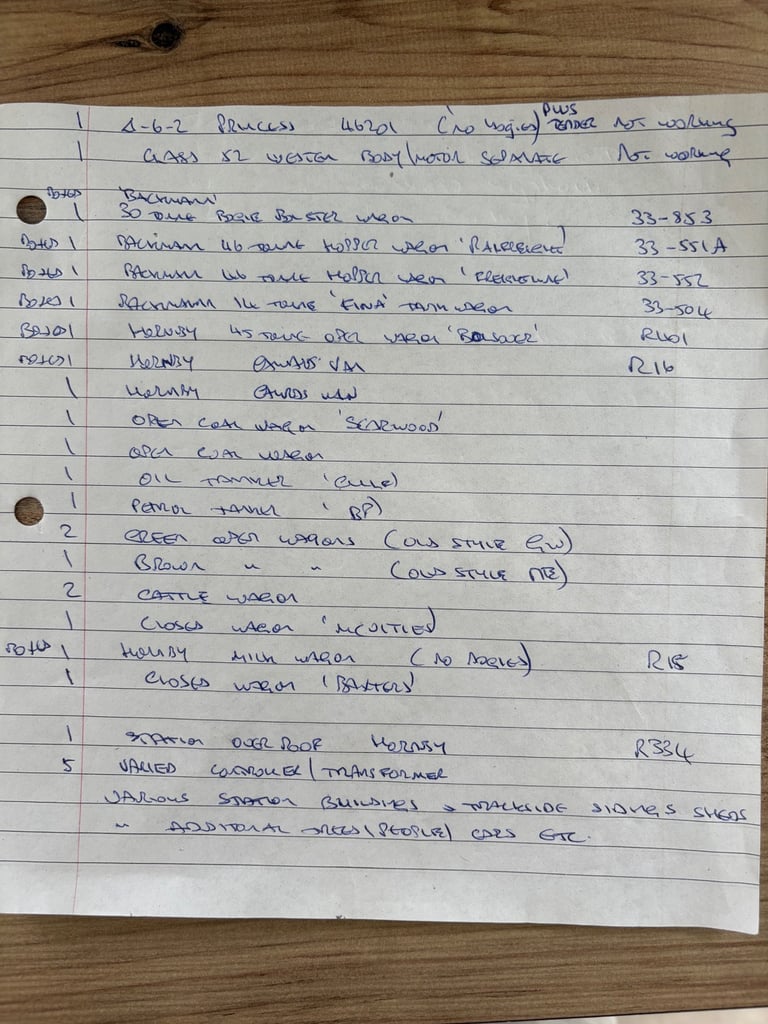 1 4-6-2 PRINCESS 46201 (NO Bogies) PLUS TENDER NOT WORKING
1 CLASS 52 WESTERN BODY/MOTOR SEPARATE NOT WORKING
BOXED 1 'BACKMANN' 30 TONNE BOGIE BOLSTER WAGON 33-853
BOXED 1 BACKMAN 46 TONNE HOPPER WAGON 33-551A
BOXED 1 BACKMAN 46 TONNE HOPPER WAGON 33-552
BOXED 1 BACKMANN 14 TONNE 'FINA' TANK WAGON 33-504
BOXED 1 HORNBY 45 TONNE OPEN WAGON 'BOLSOVER' R401
BOXED 1 HORNBY GUARDS VAN R16
1 HORNBY GUARDS VAN
1 OPEN COAL WAGON
1 OPEN COAL WAGON
1 OIL TANKER
1 PETROL TANKER 'BP)
2 GREEN OPEN WAGONS (OLD STYLE GW)
1 BROWN " " (OLD STYLE NE)
2 CATTLE WAGON
1 CLOSED WAGON 'McVITIES)
BOXED 1 HORNBY MILK WAGON (NO BOGIES) R15
1 CLOSED WAGON 'BAXTERS'
1 STATION OVER ROOF HORNBY R334
5 VARIED CONTROLLER/TRANSFORMER
VARIOUS STATION BUILDINGS + TRACKSIDE SIDINGS SHEDS
" ADDITIONAL TREES (PEOPLE) CARS ETC.